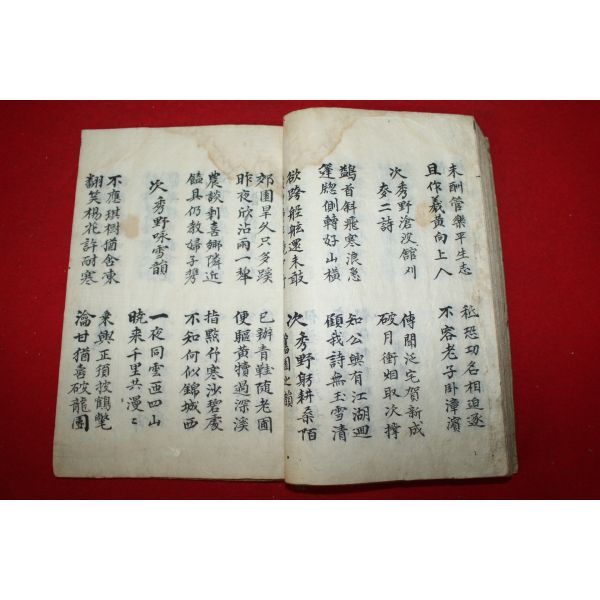 未酬管樂平生志 秪恐功名相迫逐
且作羲黃向上人 不容老子卧漳濱
次秀野滄波舘刈 傳聞泛宅賀新成
麥二詩 破月衝烟取次撑
鷁首斜飛寒浪急 知公興有江湖迥
篷牕側轉好山橫 顧我詩無玉雪清
欲跨舩舷還未敢 次秀野躬耕桑陌
舊園之韻
郊園旱久只多蹊 已辦青鞋随老圃
昨夜欣沾雨一犂 便驅黃犢過深溪
農談剩喜鄉隣近 指點竹寒沙碧處
饁具仍教婦子㩗 不知何似錦城西
次秀野咏雪韻 一夜同雲匝四山
晓来千里共漫〻
不應琪樹猶含凍 乗興正須披鶴氅
翻笑楊花許耐寒 瀹甘猶喜破龍團